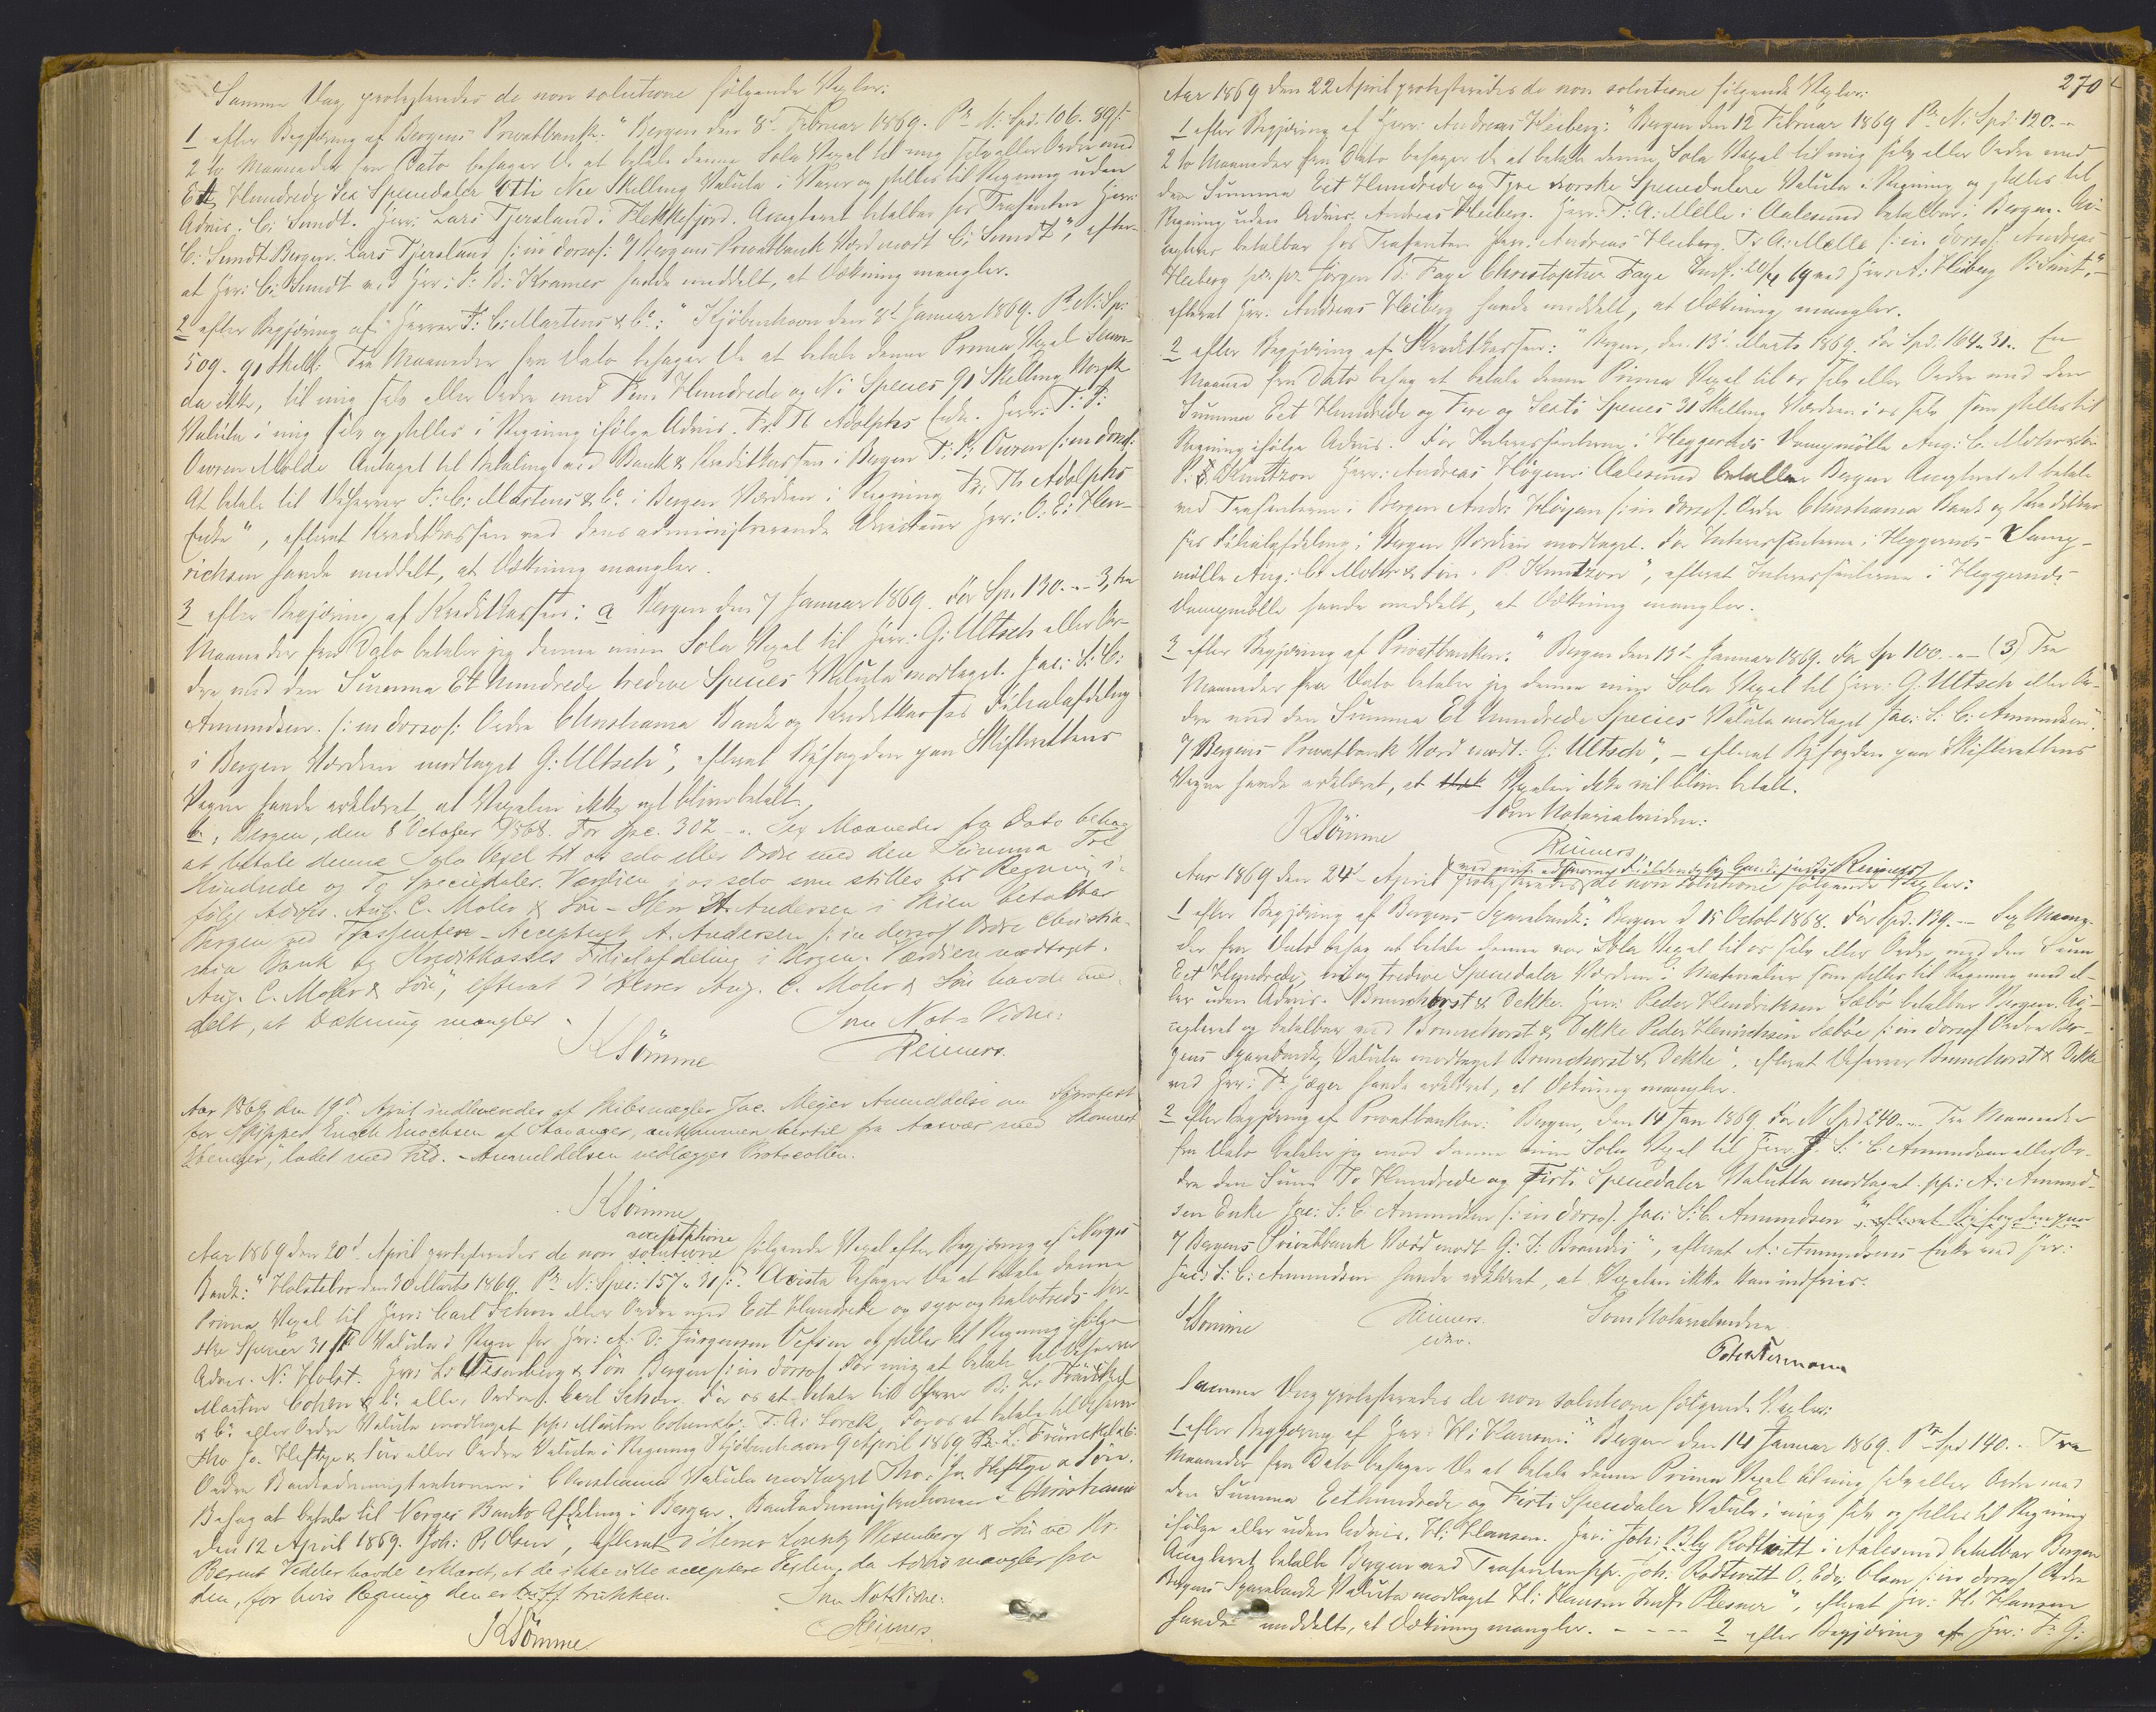 Samme Dag protesteredes de non solutione følgende Vexler:
1 efter Begjæring af Bergens Privatbank: "Bergen den 8de Februar 1869. Pr N: Spd: 106. 89 ß.
2 to Maaneder fra Dato behager De at betale denne Sola Vexel til mig selv eller Ordre med
Et Hundrede Sex Speciedaler Otti Nie Skilling Valuta i Varer og stilles til Regning uden
Advis. C: Sundt. Herr: Lars Tjersland i Flekkefjord. Accepteret betalbar hos Trasenten Herr:
C: Sundt Bergen. Lars Tjersland /: in dorso /: % Bergens Privatbank Værd modt C: Sundt", efter-
at Herr: C: Sundt ved Herr: F: B: Kramer havde meddelt, at Dækning mangler.
2 efter Begjæring af Herrer F: C: Martens & Co: "Kjøbenhavn den 8de Januar 1869. Pr N: Sp:
509. 91 Skill: Tre Maaneder fra Dato behager De at betale denne Prima Vexel Secun-
da ikke, til mig selv eller Ordre med Fem Hundrede og Ni Species 91 Skilling Norsk
Valuta i mig selv og stilles i Regning ifølge Advis. Fr: Th Adolphs Enke. Herr: T: P:
Owren Molde. Antaget til Betaling ved Bank & Kreditkassen i Bergen T: P: Owren /: in dorso /:
At betale til D'Herrer F: C: Martens & Co i Bergen Værdien i Regning Fr: Th. Adolphs
Enke", efterat Kreditkassen ved dens administrerende Directeur Herr: O: E: Hen-
richsen havde meddelt, at Dækning mangler.
3 efter Begjæring af Kreditkassen: a Bergen den 7 Januar 1869. For Sp. 130. -- 3, tre
Maaneder fra Dato betaler jeg denne min Sola Vexel til Herr: G: Ultsch eller Or-
dre med den Summa Et hundrede tredive Species Valuta modtaget. Jac: S: C:
Amundsen. /: in dorso /: Ordre Christiania Bank og Kreditkasses Filialafdeling
i Bergen Værdien modtaget G: Ultsch", efterat Byfogden paa Skifterettens
Vegne havde erklæret, at Vexelen ikke vil blive betalt.
b., Bergen, den 8 October 1868. For Spe. 302 -. Sex Maaneder fra Dato behag
at betale denne Sola Vexel til os selv eller Ordre med den Summa Tre
Hundrede og To Speciedaler. Værdien i os selv som stilles til Regning i-
følge Advis. Aug. C. Mohr & Søn - Herr A. Andersen i Skien betalbar
Bergen ved Trassenten - Accepteret A. Andersen /: in dorso /: Ordre Christia-
nia Bank og Kreditkasses Filialafdeling i Bergen. Værdien modtaget.
Aug. C. Mohr & Søn", efterat D'Herrer Aug. C. Mohr & Søn havde med-
delt, at Dækning mangler.
Som Not. Vidne:
KSømme Reimers.
Aar 1869 den 19de April indleveredes af Skibsmægler Jac. Meyer Anmeldelse om Søprotest
for Skipper Enoch Enochsen af Stavanger, ankommen hertil fra Aasvær med Skonnert
Ebeneser, ladet med Sild. - Anmeldelsen vedlægges Protocollen.
KSømme
acceptatione
Aar 1869 den 20de April protesteredes de non solutione følgende Vexel efter Begjæring af Norges
Bank: "Holstebro den 30 Marts 1869. Pr N: Spec: 157 " 31 ß. Avista behager De at betale denne
Prima Vexel til Herr: Carl Schou eller Ordre med Eet Hundrede og syv og halvtreds Nor-
ske Species 31 ß Valuta i Regn for Herr: A: D: Jürgensen Vefsen og stilles til Regning ifølge
Advis. N: Holst. Herr: L: Wesenberg & Søn Bergen /: in dorso /: For mig at betale til D'Herrer
Martin Cohen & Co: eller Ordre. Carl Schou. For os at betale til D'Herrer B: L: Fränckel
& Co: eller Ordre Valuta modtaget pp: Martin Cohen & Co: F: A: Lorck. For os at betale til D'Herrer
Tho Jo. Heftye & Søn eller Ordre Valuta i Regning Kjøbenhavn 9 April 1869 B: L: Fränckel & Co:
Ordre Bankadministrationen i Christiania Valuta modtaget Tho: Jo: Heftye & Søn.
Behag at betale til Norges Banks Afdeling i Bergen. Bankadministrationen i Christiania
den 12 April 1869. Joh: P: Olsen", efterat D'Herrer Lorentz Wesenberg & Søn ved Hr.
Berent Vedeler havde erklæret, at de ikke ville acceptere Vexlen, da Advis mangler fra
den, for hvis Regning den er trukken.
Som Not. Vidne:
KSømme Reimers.
270
Aar 1869 den 22 April protesteredes de non solutione følgende Vexler:
1 efter Begjæring af Herr: Andreas Heiberg: "Bergen den 12 Februar 1869 Pr N: Spd: 120. -
2 to Maaneder fra Dato behager De at betale denne Sola Vexel til mig selv eller Ordre med
den Summa Eet Hundrede og Tyve norske Speciedalere Valuta i Regning og stilles til
Regning uden Advis. Andreas Heiberg. Herr: T: A: Melle i Aalesund betalbar i Bergen. Ac-
cepteres betalbar hos Trasenten Herr. Andreas Heiberg. T: A: Melle /: in dorso /: Andreas
Heiberg pr. pr. Jørgen B: Faye Christopher Faye Indf: 20/4 69 ved Herr A: Heiberg",
efterat Herr. Andreas Heiberg havde meddelt, at Dækning mangler.
2 efter Begjæring af Kreditkassen: "Bergen, den 13de Marts 1869. For Spd. 164 " 31. En
Maaned fra Dato behag at betale denne Prima Vexel til os selv eller Ordre med den
Summa Eet Hundrede og Fire og Sexti Species 31 Skilling Værdien i os selv som stilles til
Regning ifølge Advis. For Interessenterne i Heggernes Dampmølle Aug: C. Mohr & Søn
P. Knutzon Herr: Andreas Höyem i Aalesund betalbar Bergen Accepteret at betale
ved Trasenterne i Bergen Andr: Höyem /: in dorso /: Ordre Christiania Bank og Kreditkas-
ses Filialafdeling i Bergen Værdien modtaget. For Interessenterne i Heggernes Damp-
mølle Aug: C: Mohr & Søn. P. Knutzon", efterat Interessenterne i Heggernes
Dampmølle havde meddelt, at Dækning mangler.
3 efter Begjæring af Privatbanken: "Bergen den 13de Januar 1869. For Sp 100. - (3) Tre
Maaneder fra Dato betaler jeg denne min Sola Vexel til Herr: G: Ultsch eller Or-
dre med den Summa Et hundrede Species Valuta modtaget Jac: S: C: Amundsen".
% Bergens Privatbank Værd modt: G: Ultsch", - efterat Byfogden paa Skifterettens
Vegne havde erklæret, at Vexelen ikke vil blive betalt.
Som Notarialvidne:
KSømme Reimers
Reimers
Aar 1869 den 24de April protesteredes de non solutione følgende Vexler:
1 efter Begjæring af Bergens Sparebank: "Bergen d 15 Octob 1868. For Spd. 139. - Sex Maane-
der fra Dato behag at betale denne vor Sola Vexel til os selv eller Ordre med den Sum
Eet Hundrede, ni og tredive Speciedaler Værdien i Materialier som stilles til Regning med el-
ler uden Advis. Brunchorst & Dekke. Herr: Peder Hendriksen Sæbø betalbar Bergen. Ac-
cepteret og betalbar ved Brunchorst & Dekke Peder Henrichsen Sæbøe /: in dorso /: Ordre Ber-
gens Sparebank, Valuta modtaget Brunchorst & Dekke", efterat D'Herrer Brunchorst & Dekke
ved Herr: Fr Jæger havde erklæret, at Dækning mangler.
2 efter Begjæring af Privatbanken: "Bergen, den 14 Jan 1869. For N Spd 240. -. Tre Maaneder
fra Dato betaler jeg mod denne min Sola Vexel til Herr J. S: C: Amundsen eller Or-
dre den Sum To Hundrede og Firti Speciedaler Valutta modtaget. pp: A: Amund-
sen Enke Jac: S: C Amundsen /: in dorso /: Jac: S: C. Amundsen
% Bergens Privatbank Værd modt G: F: Brandis", efterat A: Amundsens Enke ved Herr:
Jac: S: C: Amundsen havde erklæret, at Vexelen ikke kan indfries.
KSømme Reimers. Som Notarialvidne
Samme Dag protesteredes de non solutione følgende Vexler:
1 efter Begjæring af Herr: H: Hansen: "Bergen den 14 Januar 1869. Pr Spd 140. - Tre
Maaneder fra Dato behager De at betale denne Prima Vexel til mig selv eller Ordre med
den Summa Eethundrede og Firti Speciedaler Valuta i mig selv og stilles til Regning
ifølge eller uden Advis. H: Hansen. Herr: Joh: Bly Rødtwitt i Aalesund betalbar Bergen
Accepteret betalbar Bergen ved Trasenten pp. Joh: Rødtwitt O. Edv: Olsen /: in dorso /: Ordre
Bergens Sparebank Valuta modtaget H: Hansen Indf: Plesner", efterat Herr: H. Hansen
havde meddelt, at Dækning mangler. - - - - 2 efter Begjæring af Herr: Fr G: